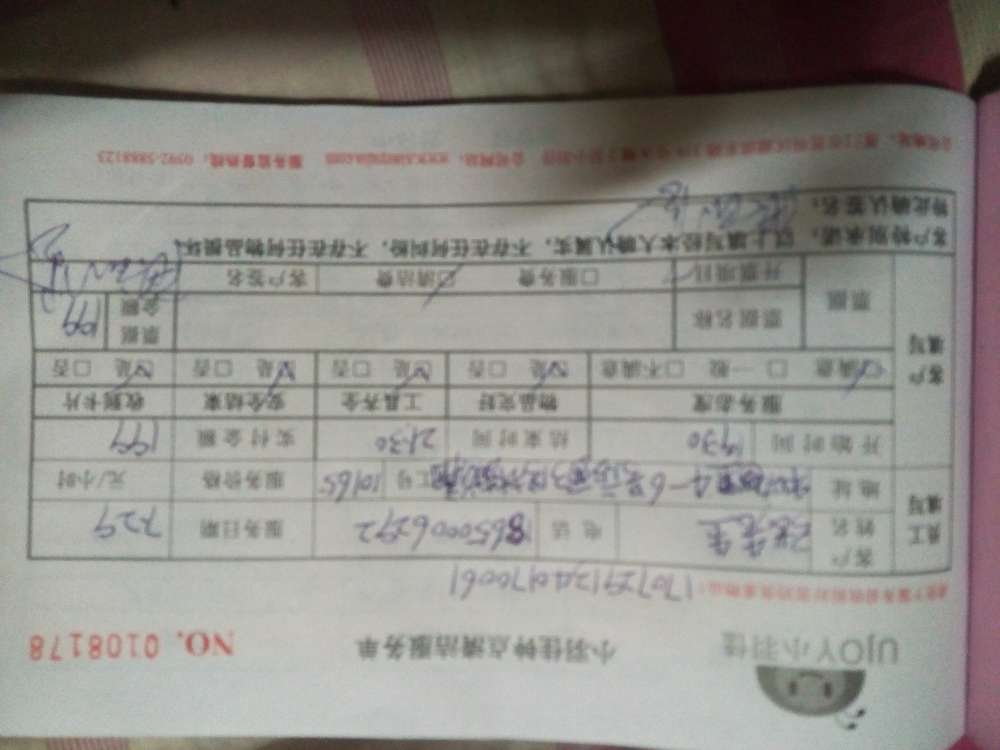 UJOY小羽佳
小羽佳钟点清洁服务单
NO. 0108178
1707291340170061
员工填写
客户姓名 先生 电话 18650006292 服务日期 7.29
地址 工号 10165 服务价格 元/小时
开始时间 1930 结束时间 2130 实付金额 199
客户填写
服务态度 物品完好 工具齐全 安全结束 收到卡片
☑满意 □一般 □不满意 ☑是 □否 ☑是 □否 ☑是 □否 ☑是 □否
票据 票据名称 票据金额 199
开票项目 □服务费 □清洁费 客户签名
客户特别承诺：以上填写经本人确认属实，不存在任何纠纷，不存在任何物品损坏。
特此确认签名：
公司网址： 服务监督热线：0592-5888123